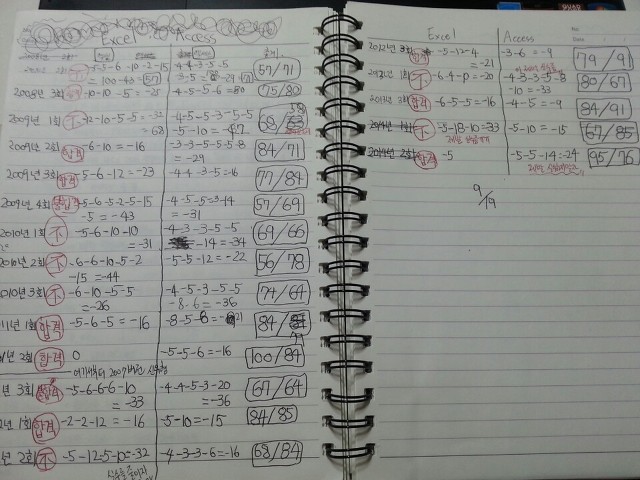 Excel Access
57/71
2008년 3회 -10-10-5=-25 -4-5-5-6=80 75/80
2009년 1회 不
= 68 -5-10=-47
2009년 2회 합격 -6-10=-16 -3-3-5-5-5-8 84/71
= -29
2009년 3회 합격 -5-6-12=-23 -4-4-3-5=16 77/84
2009년 4회 불합격 -5-6-5-2-5-15 -4-5-5-3-14 57/69
-5=-43 =-31
2010년 1회 不 -6-6-10-10 -4-3-3-5-5 69/66
=-31 -14=-34
2010년 2회 不 -6-6-10-5-2 -5-5-12=-22 56/78
-15=-44
2010년 3회 不 -6-10-5-5 -4-5-3-5-5 74/64
=-26 -8-6=-36
11년 1회 합격 -5-6-5=-16 84/
년 2회 합격 0 -5-5-6=-16 100/84
년 3회 불합격 -5-6-6-6-10 -4-4-5-3-20 67/64
=-33 =-36
년 1회 합격 -2-2-12=-16 -5-10=-15 84/85
년 2회 不 -5-12-5-10=-32 -4-3-3-6=-16 68/84
Excel Access
2012년 3회 합격 -5-12-4 -3-6=-9 79/91
=-21
1회 不 -6-4-10=-20 -4-3-3-5-8 80/67
-10=-33
합격 -6-5-5=-16 -4-5=-9 84/91
2014년 1회 不 -5-18-10=33 -5-10=-15 67/85
2014년 2회 합격 -5 -5-5-14=24 95/76
9/19